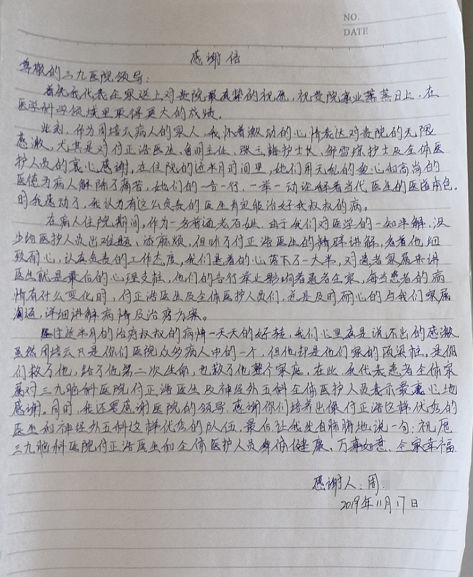 NO.
DATE
感谢信
尊敬的三九医院领导:
首先我代表全家送上对贵院最真挚的祝愿,祝贵院事业蒸蒸日上,在
医学科学领域里取得更大的成绩。
此刻,作为周培云病人的家人,我怀着激动的心情表达对贵院的无限
感激,尤其是对付正浩医生,鲁明主任,张三梅护士长,邹雪琛护士及全体医
护人员的衷心感谢。在住院的近半月时间里,他们用无私的爱心和高尚的
医德为病人解除了痛苦,他们的一言一行,一举一动诠释着当代医生的医德本色.
时我感动了,我认为有这么负责的医生肯定能治好我叔叔的病。
在病人住院期间,作为一名普通老百姓,由于我们对医学的一知半解,没
少给医护人员出难题,添麻烦,但听了付正浩医生的精辟讲解,看着他细
致而耐心,认真负责的工作态度,我们悬着的心落下了一大半,对患者家属来讲
医生就是最后的心理支柱,他们的言行举止影响着患者全家,每当患者的病
情有什么变化时,付正浩医生及全体医护人员们,总是及时耐心的与我们家属
沟通,详细讲解病情及治疗方案。
经过近半月的治疗叔叔的病情一天天的好转,我们心里真是说不出的感激
虽然周培云只是你们医院众多病人中的一个,但他却是他们家的顶梁柱,是你
们救了他,给了他第二次生命,也救了他整个家庭,在此我代表患者全体家
属对三九脑科医院付正浩医生及神经外五科全体医护人员表示最衷心地
感谢,同时我还要感谢医院的领导,感谢你们培养出像付正浩这样优秀的
医生和神经外五科这样优秀的队伍,最后让我发自肺腑地说一句:祝愿
三九脑科医院付正浩医生和全体医护人员身体健康,万事如意,全家幸福
感谢人:周
2019年11月17日